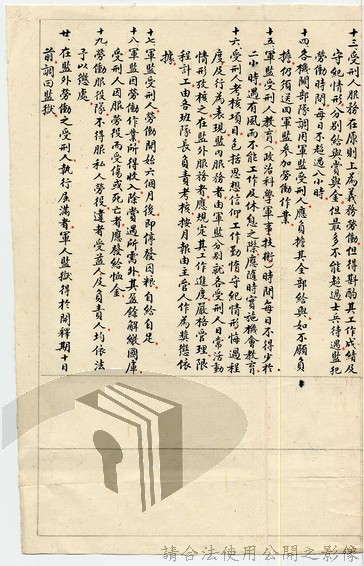 十三受刑人服務在原則上為義務勞動但得斟酌其工作成績及
守紀情形分別給與賞與金但最多不能超過士兵待遇監犯
勞動時間每日不超過八小時
十四各機關部隊調用軍監受刑人應負擔其全部給與如不願負
擔仍須送回軍監參加勞動作業
十五軍監受刑人教育政治科學軍事技術時間每日不得少於
二小時遇有風雨不能工作及休息之際應隨時實施機會教育
十六受刑人考核項目包括思想信仰工作勤惰守紀情形悔過程
度及行為表現監內服務者由軍監分別就各受刑人日常活動
情形攷核之在監外服務者應規定其工作進度嚴格管理限
程計工由各班隊長負責考核按月報由主管人作為獎懲依
據
十七軍監受刑人勞動開始六個月後即停發囚糧自給自足
十八軍監因勞動作業所得收入除賞遇所需外其盈餘解繳國庫
受刑人因服勞役而受傷或死亡者應發給恤金
十九勞動服役隊不得服私人勞役違者受益人及負責人均依法
予以懲處
廿在監外勞動之受刑人執行屆滿者軍人監獄得於開釋期十日
前調回監獄
請合法使用公開之影像